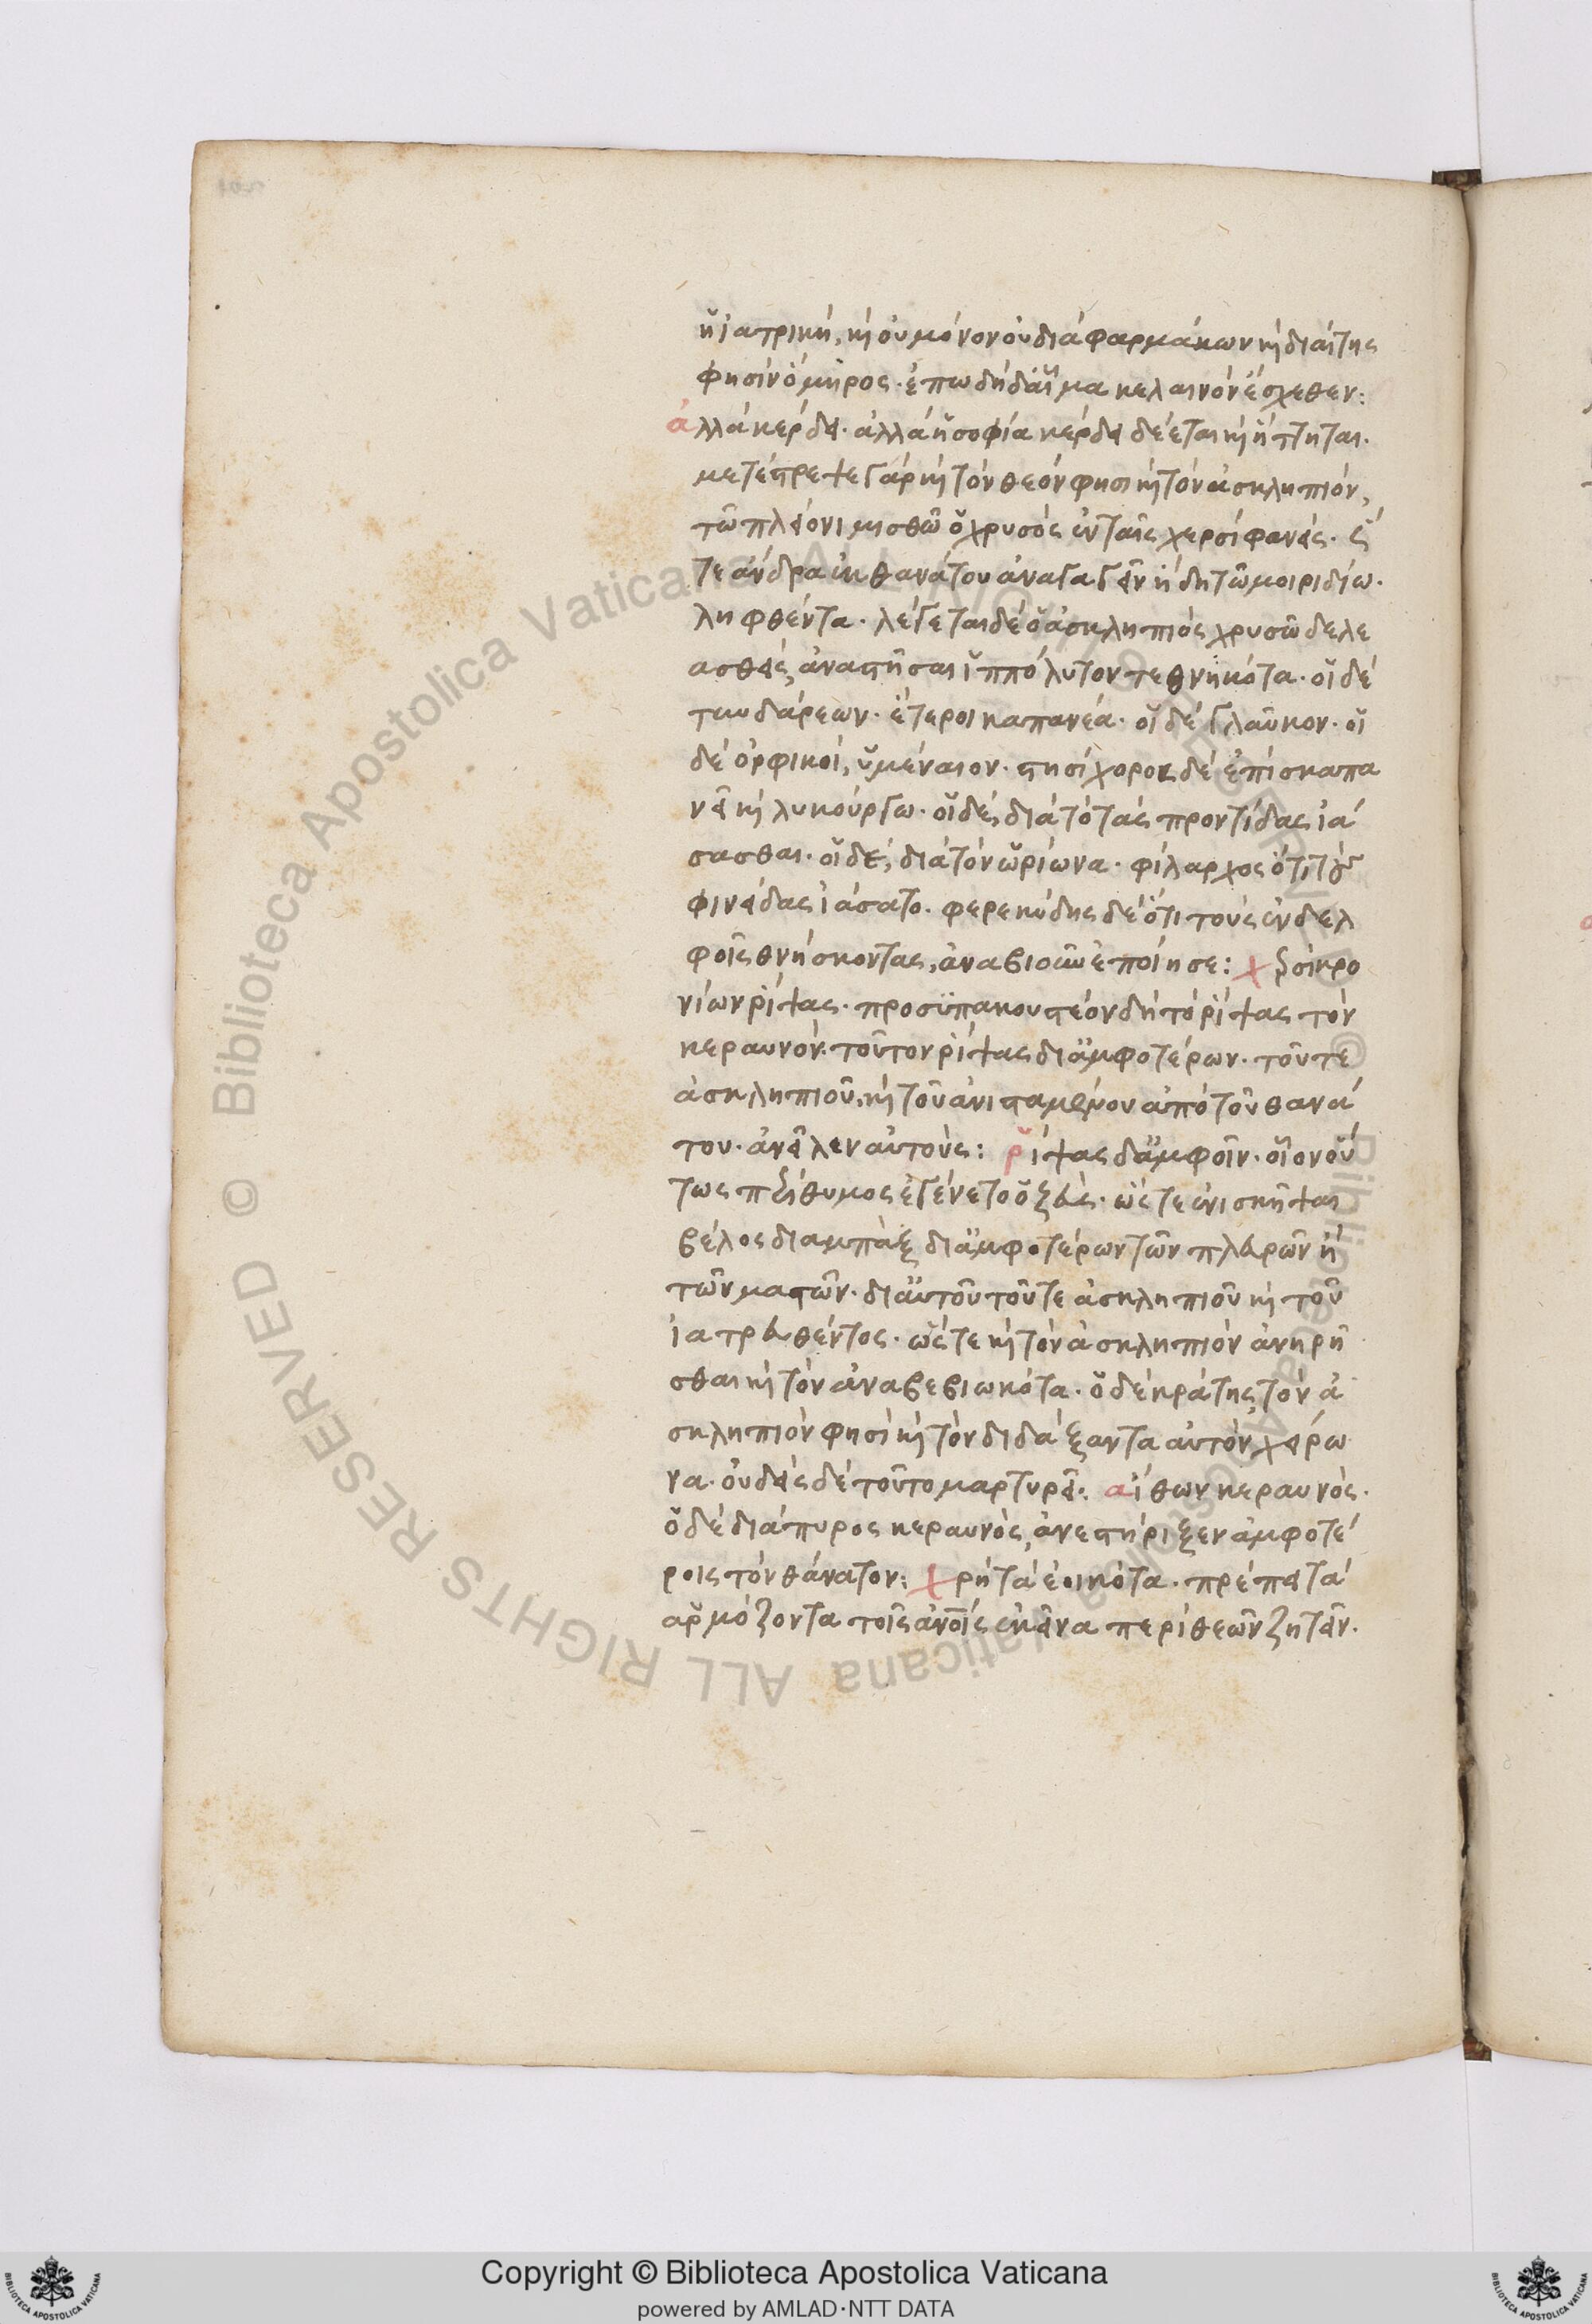 ἡ ἰατρική, καὶ οὐ μόνον οὐ διὰ φαρμάκων καὶ διαίτης
φησὶν ὁ μηρος· ἐπωδῇ δ' αἷμα κελαινὸν ἔσχεθεν:
ἀλλὰ κέρδει· ἀλλὰ ἡ σοφία κέρδει δέεται καὶ ἥττηται·
μετέτρεψε γὰρ καὶ τὸν θεόν φησι καὶ τὸν ἀσκληπιόν,
τῶ πλείονι μισθῶ ὁ χρυσὸς ἐν ταῖς χερσὶ φανείς· ὥς
τε ἄνδρα ἐκ θανάτου ἀναγαγεῖν ἤδη τῶ μοιριδίω·
ληφθέντα· λέγεται δὲ ὁ ἀσκληπιὸς χρυσῶ δελε
ασθείς, ἀναστῆσαι ἱππόλυτον τεθνηκότα· οἱ δὲ
τυνδάρεων· ἕτεροι καπανέα· οἱ δὲ γλαῦκον· οἱ
δὲ ὀρφικοί, ὑμέναιον· στησίχορος δὲ ἐπὶ σκαπα
νεῖ καὶ λυκούργω· οἱ δὲ, διὰ τὸ τὰς προντίδας ἰά
σασθαι· οἱ δὲ, διὰ τὸν ὠρίωνα· φίλαρχος ὅτι τοὺς
φινείδας ἰάσατο· φερεκύδης δὲ ὅτι τοὺς ἐν δελ
φοῖς θνήσκοντας, ἀναβιοῦν ἐποίησε: χερσὶ κρο
νίων ῥίψας· προσυπακουστέον δὴ τὸ ῥίψας τὸν
κεραυνόν· τοῦτον ῥίψας δι' ἀμφοτέρων· τοῦ τε
ἀσκληπιοῦ, καὶ τοῦ ἀνισταμένου ἀπὸ τοῦ θανά
του· ἀνεῖλεν αὐτούς: ῥίψας δ' ἀμφοῖν· οἷον οὕ
τως περίθυμος ἐγένετο ὁ ζεύς· ὥστε ἐνισκῆψαι
βέλος διαμπὰξ δι' ἀμφοτέρων τῶν πλευρῶν ἢ
τῶν μαστῶν· δι' αὐτοῦ τοῦ τε ἀσκληπιοῦ καὶ τοῦ
ἰατρευθέντος· ὥστε καὶ τὸν ἀσκληπιὸν ἀνῃρῆ
σθαι καὶ τὸν ἀναβεβιωκότα· ὁ δὲ κράτης τὸν ἀ
σκληπιὸν φησὶ καὶ τὸν διδάξαντα αὐτὸν χείρω
να· οὐδεὶς δὲ τοῦτο μαρτυρεῖ: αἴθων κεραυνός·
ὁ δὲ διάπυρος κεραυνὸς, ἀνεστήριξεν ἀμφοτέ
ροις τὸν θάνατον: χρὴ τὰ ἐοικότα· πρέπει τὰ
ἁρμόζοντα τοῖς ἀνοῖς ἐκεῖνα περὶ θεῶν ζητεῖν·
Copyright © Biblioteca Apostolica Vaticana
powered by AMLAD·NTT DATA
© Biblioteca Apostolica Vaticana ALL RIGHTS RESERVED
© Biblioteca Apostolica Vaticana ALL RIGHTS RESERVED